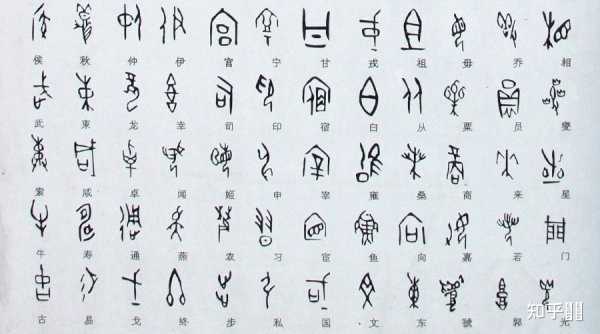 侯 秋 仲 伊 宫 宁 甘 戎 祖 毋 乔 相
武 東 龙 幸 司 印 宿 白 从 粟 员 燮
索 咸 卓 闻 姬 申 宰 雍 桑 商 来 星
牛 寿 通 燕 农 习 宦 鱼 向 嘉 若 门
古 易 戈 终 步 私 国 文 东 虢 郭 光
知乎